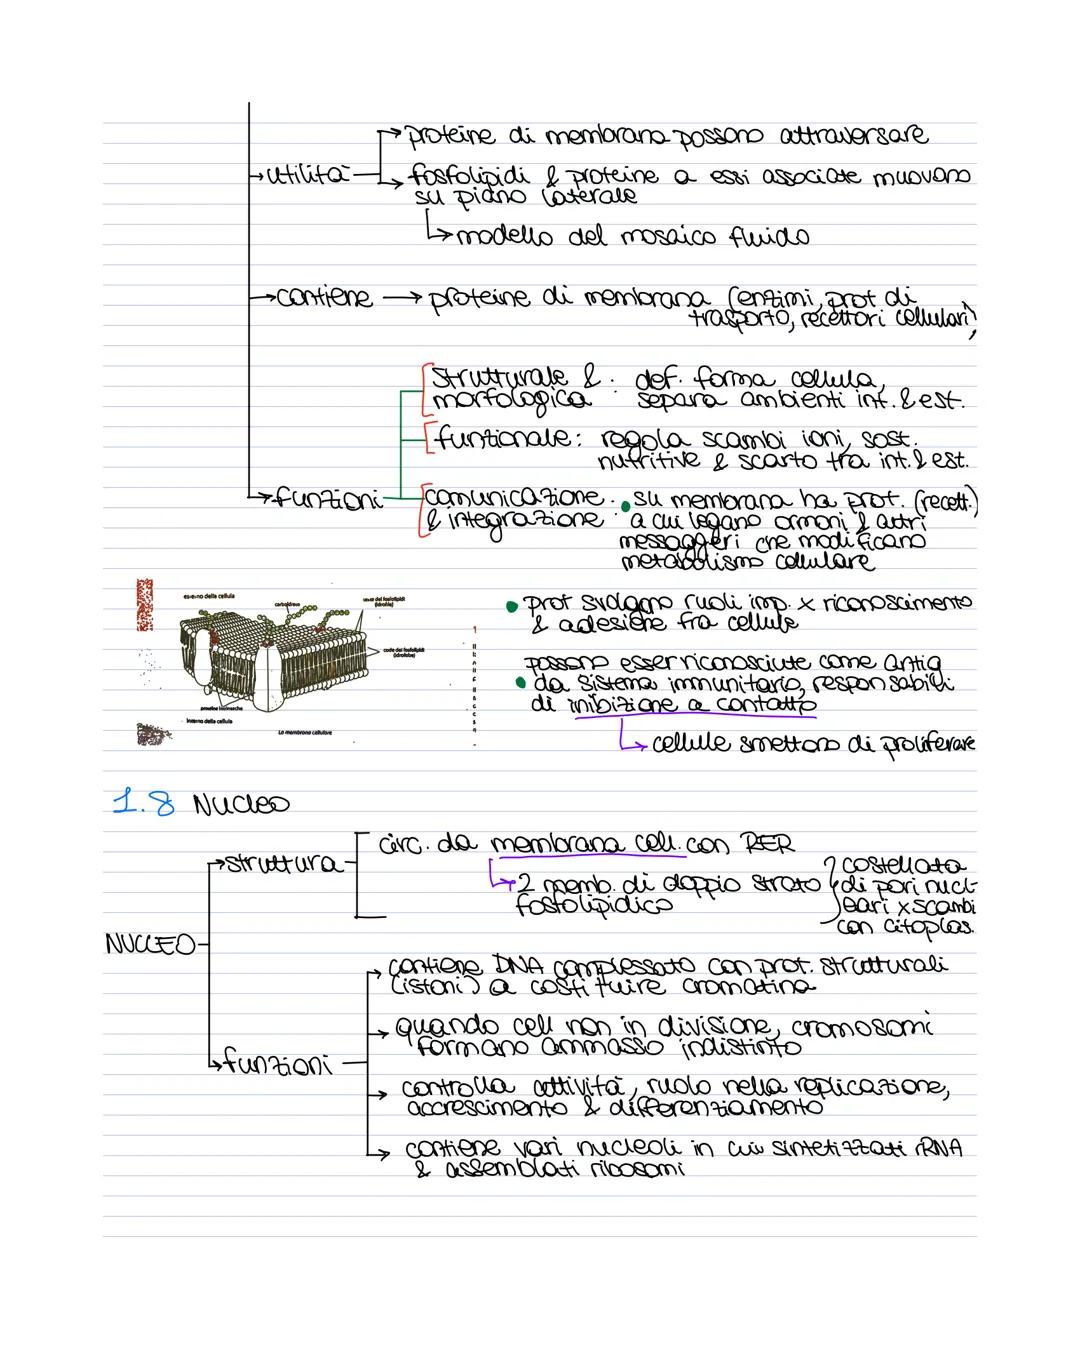 proteine di membrana possono attraversare
utilità
fosfolipidi & proteine a essi associate muovono
su piano laterale
modello del mosaico fluido
contiene → proteine di membrana (enzimi, prot di
trasporto, recettori cellulari)
strutturale & : def. forma cellula,
morfologica separa ambienti int. & est.
funzionale: regola scambi ioni, sost.
nutritive & scarto tra int. & est.
funzioni
comunicazione : • su membrana ha prot. (recett.)
& integrazione a cui legano ormoni & altri
messaggeri che modificano
metabolismo cellulare
esterno della cellula
carboidrato
teste dei fosfolipidi
(idrofile)
code dei fosfolipidi
(idrofobe)
proteine intrinseche
interno della cellula
La membrana cellulare
• prot svolgono ruoli imp. x riconoscimento
& adesione fra cellule
possono esser riconosciute come antig
• da sistema immunitario, responsabili
di inibizione a contatto
cellule smettono di proliferare
1.8 Nucleo
struttura
circ. da membrana cell. con RER
2 memb. di doppio strato
fosfolipidico
costellata
di pori nucl-
eari x scambi
con citoplas.
NUCLEO
contiene DNA complessato con prot. strutturali
(istoni) a costituire cromatina
quando cell non in divisione, cromosomi
formano ammasso indistinto
funzioni
controlla attività, ruolo nella replicazione,
accrescimento & differenziamento
contiene vari nucleoli in cui sintetizzati rRNA
& assemblati ribosomi